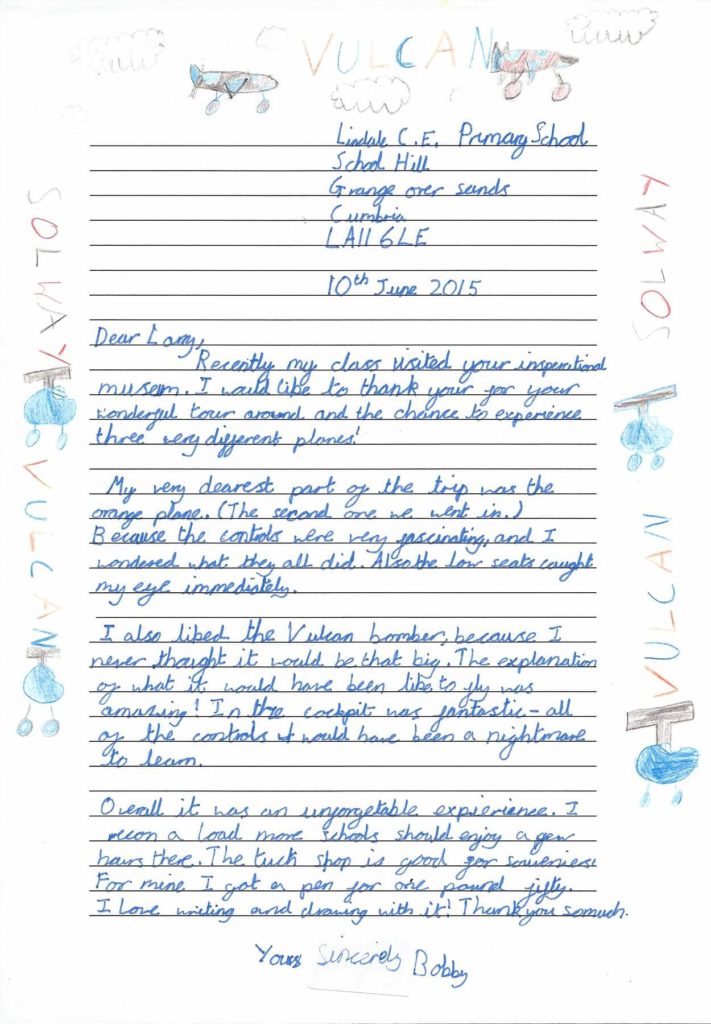 VULCAN
SOLWAY
VULCAN
SOLWAY
VULCAN
Lindale C.E. Primary School
School Hill
Grange over sands
Cumbria
LA11 6LE
10th June 2015
Dear Larry,
Recently my class visited your insperational
museum. I would like to thank your for your
wonderful tour around and the chance to experience
three very different planes!
My very dearest part of the trip was the
orange plane. (The second one we went in.)
Because the controls were very fascinating, and I
wondered what they all did. Also the low seats caught
my eye immediately.
I also liked the Vulcan bomber, because I
never thought it would be that big. The explanation
of what it would have been like to fly was
amazing! In the cockpit was fantastic - all
of the controls it would have been a nightmare
to learn.
Overall it was an unforgetable expirience. I
recon a load more schools should enjoy a few
hours there. The tuck shop is good for souveniers!
For mine I got a pen for one pound fifty.
I love writing and drawing with it! Thank you so much.
Yours Sincerely Bobby